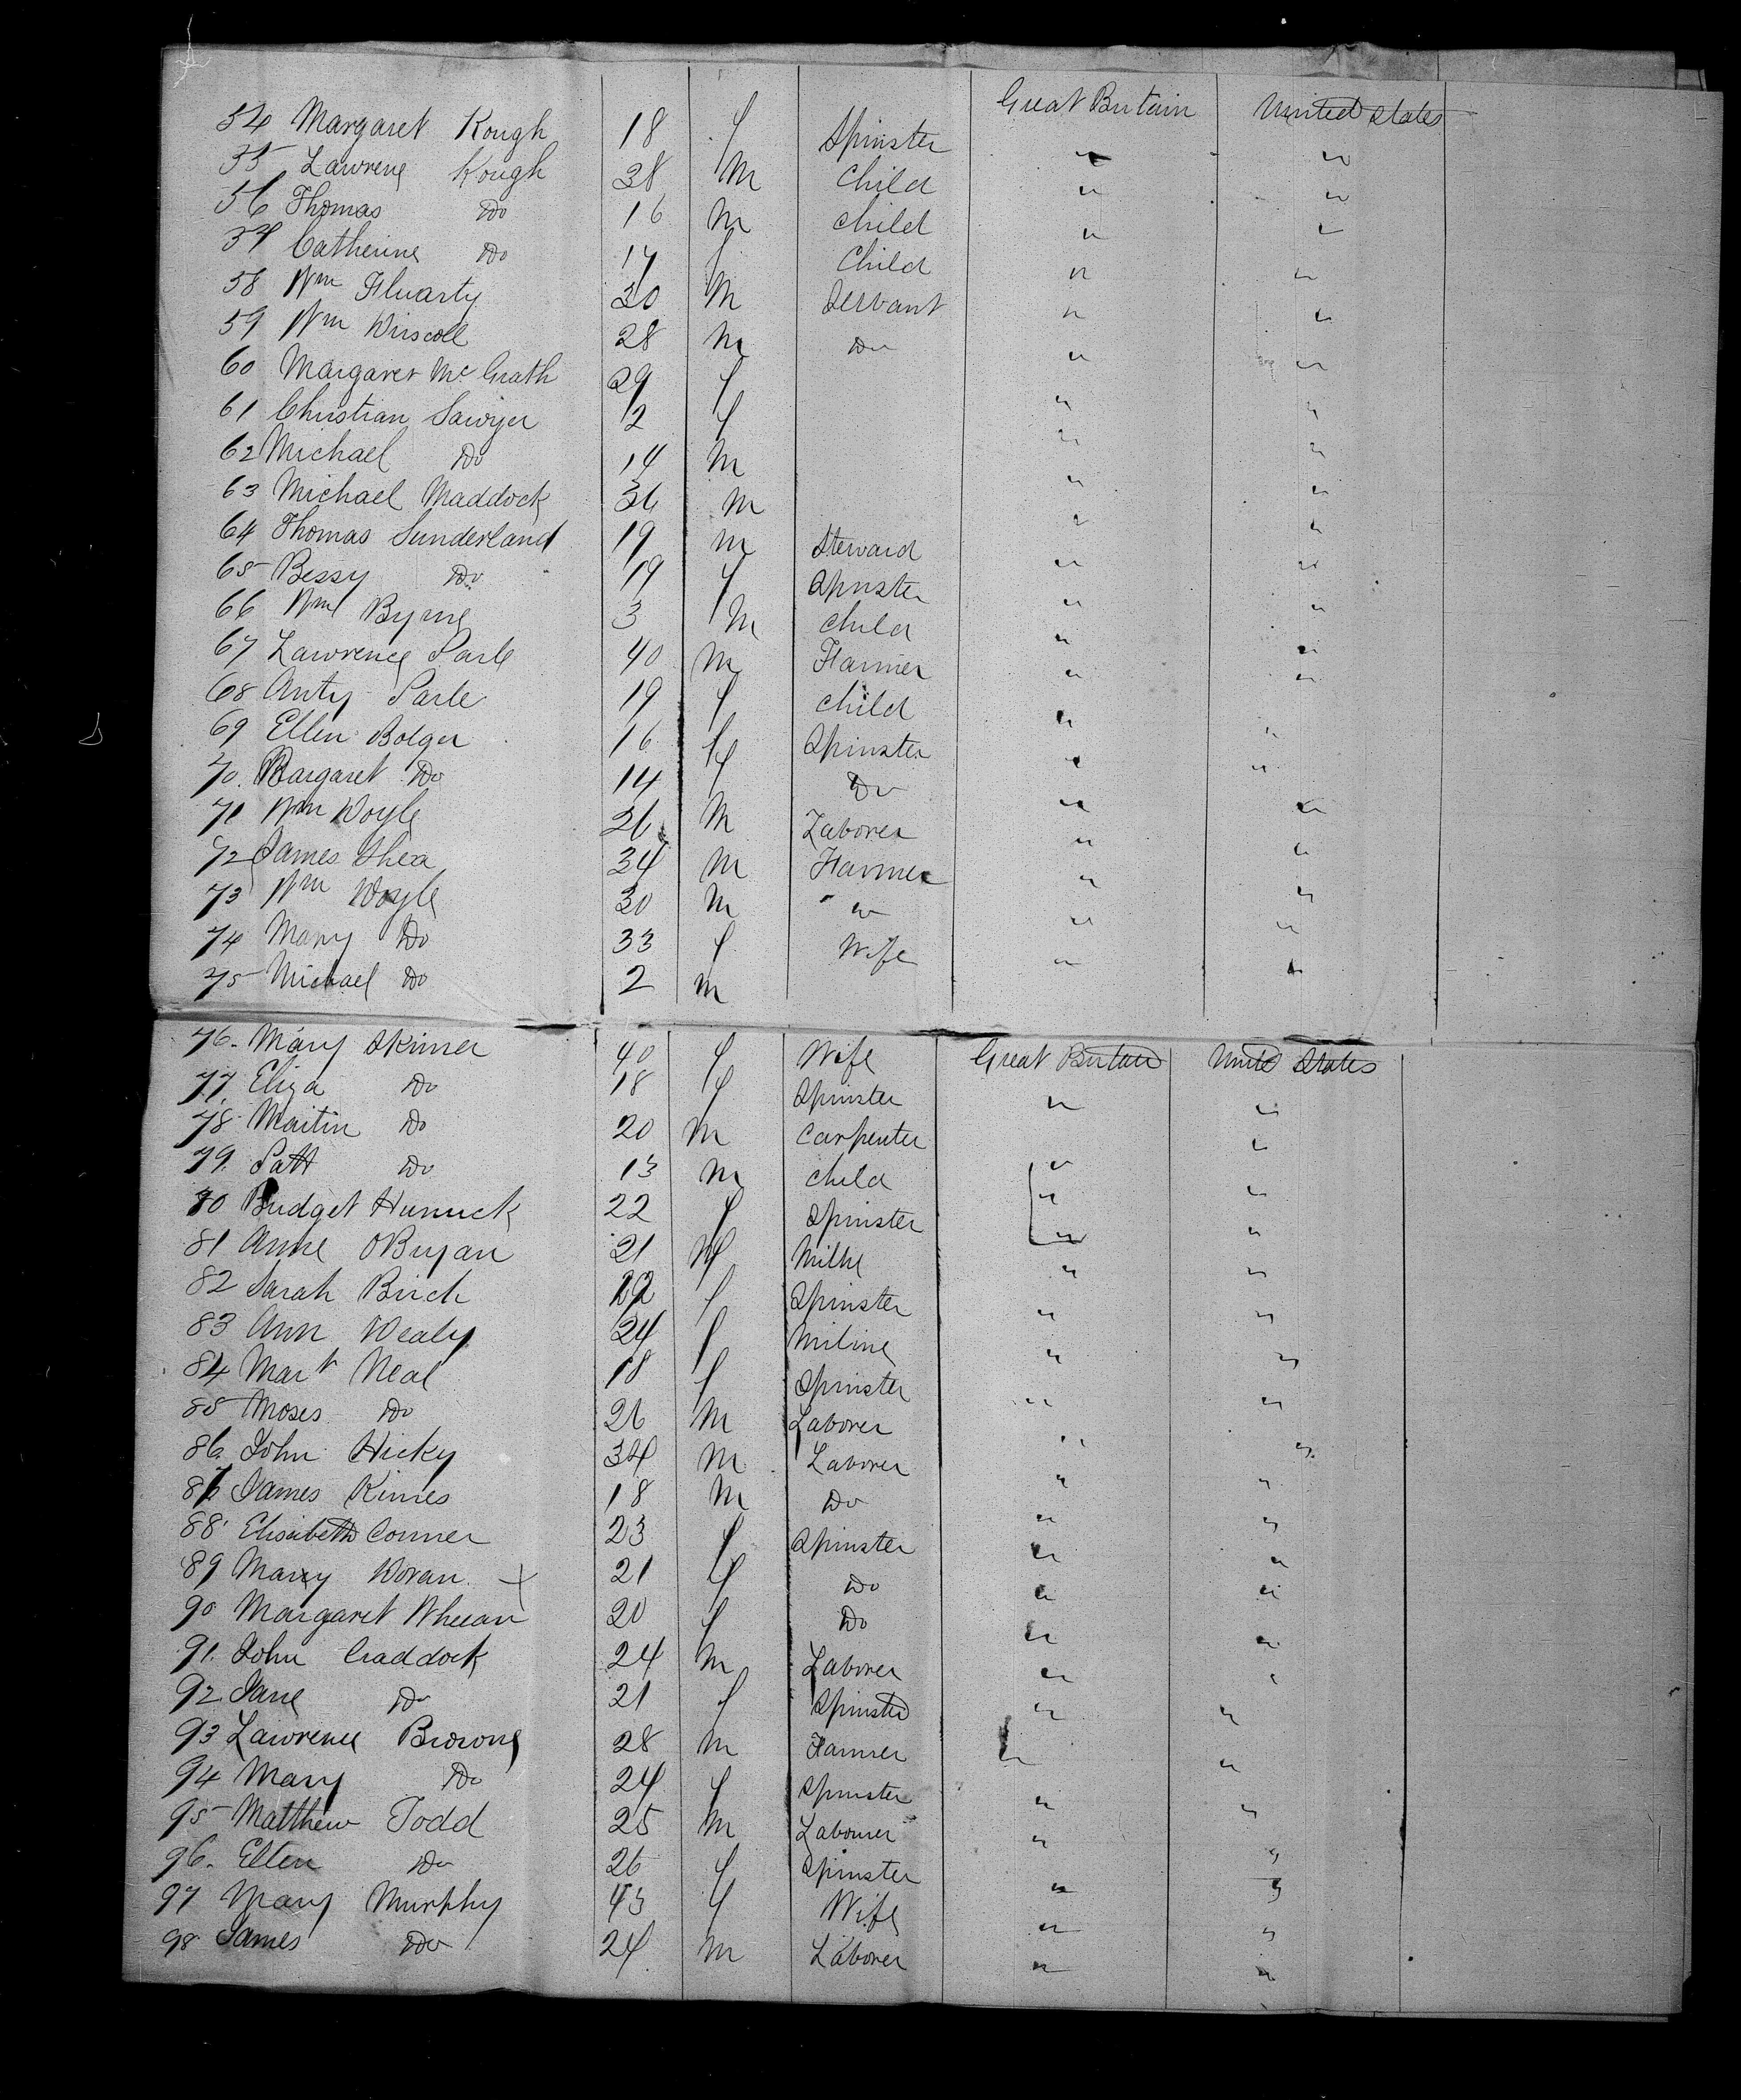 54 Margaret Kough 18 f Spinster Great Britain United States
55 Lawrence Kough 38 M Child " "
56 Thomas Do 16 M child " "
57 Catherine Do 17 f Child " "
58 Wm Fluarty 30 M Servant " "
59 Wm Driscoll 28 M Do " "
60 Margaret Mc Grath 29 f " "
61 Christian Sawyer 2 f " "
62 Michael Do 14 M " "
63 Michael Maddock 36 M " "
64 Thomas Sunderland 19 m Steward " "
65 Bessy Do 19 f Spinster " "
66 Wm Byrne 3 M child " "
67 Lawrence Parle 40 M Farmer " "
68 Anty Parle 19 f child " "
69 Ellen Bolger 16 f Spinster " "
70. Margaret Do 14 f Do " "
71 Wm Doyle 26 M Laborer " "
72 James Shea 34 M Farmer " "
73 Wm Doyle 30 M " " "
74 Mary Do 33 f Wife " "
75 Michael Do 2 m " "
76. Mary Skinner 40 f Wife Great Britain United States
77. Eliza Do 18 f Spinster " "
78 Martin Do 20 m Carpenter " "
79. Patt Do 13 M child " "
80 Bridget 22 f Spinster " "
81 Anne OBryan 21 f " "
82 Sarah Birch 22 f Spinster " "
83 Ann Dealy 24 f " "
84 Mart Neal 18 f Spinster " "
85 Moses Do 26 M Laborer " "
86. John Hicky 34 M Laborer " "
87 James Kinnes 18 M Do " "
88 Elisabeth Conner 23 f Spinster " "
89 Mary Doran + 21 f Do " "
90 Margaret Wheean 20 f Do " "
91. John Craddock 24 M Laborer " "
92. Jane Do 21 f Spinster " "
93 Lawrence Browne 28 M Farmer " "
94 Mary Do 24 f Spinster " "
95 Matthew Todd 25 M Labourer " "
96. Ellen Do 26 f Spinster " "
97 Mary Murphy 43 f Wife " "
98 James Do 24 M Laborer " "